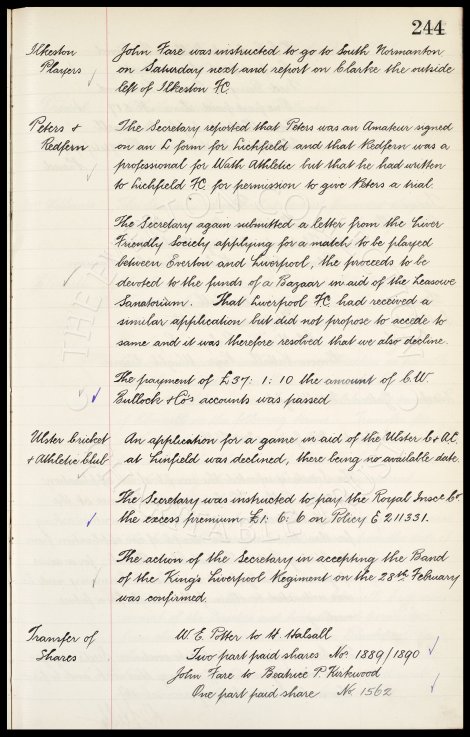 244
Ilkeston Players
John Fare was instructed to go to South Normanton
on Saturday next and report on Clarke the outside
left of Ilkeston FC.
Peters & Redfern
The Secretary reported that Peters was an Amateur signed
on an L form for Lichfield and that Redfern was a
professional for Wath Athletic but that he had written
to Lichfield FC. for permission to give Peters a trial.
The Secretary again submitted a letter from the Liver
Friendly Society applying for a match to be played
between Everton and Liverpool, the proceeds to be
devoted to the funds of a Bazaar in aid of the Leasowe
Sanatorium. That Liverpool FC. had received a
similar application but did not propose to accede to
same and it was therefore resolved that we also decline.
The payment of £37: 1: 10 the amount of C.W.
Bullock & Co's accounts was passed
Ulster Cricket & Athletic Club
An application for a game in aid of the Ulster C & A.C.
at Linfield was declined, there being no available date.
The Secretary was instructed to pay the Royal Insce Co
the excess premium £1: 6: 6 on Policy E 211331.
The action of the Secretary in accepting the Band
of the King's Liverpool Regiment on the 28th February
was confirmed.
Transfer of Shares
W. E. Potter to H. Halsall
Two part paid shares No. 1889/1890
John Fare to Beatrice P. Kirkwood
One part paid share No. 1562